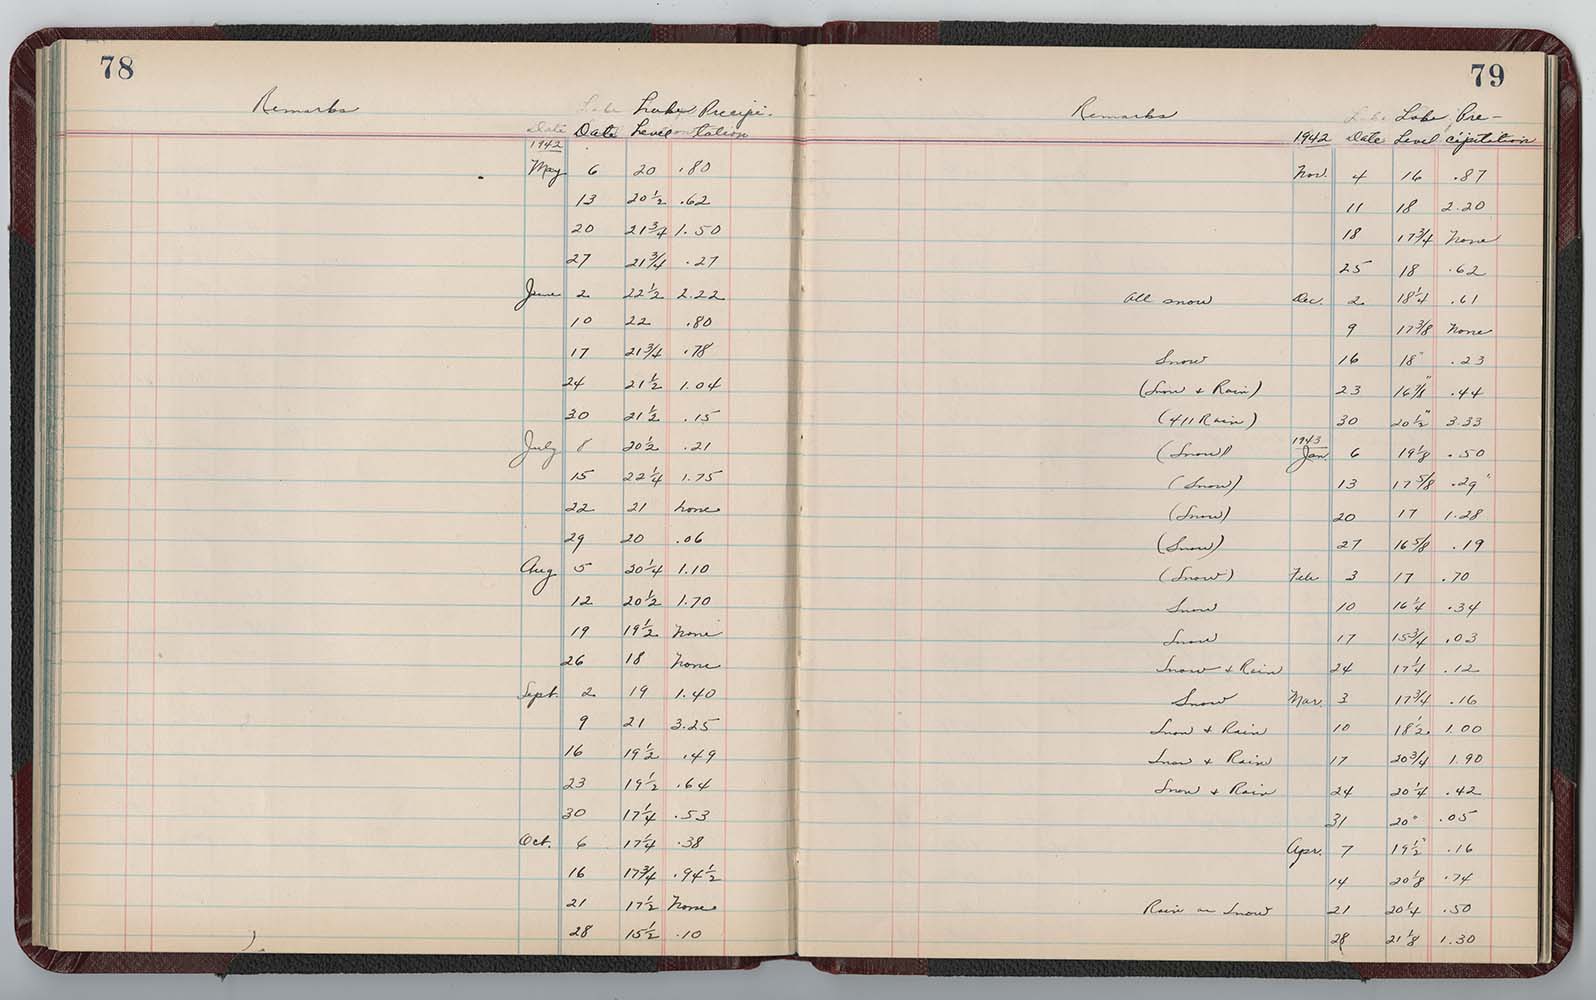 78
Remarks Date Lake Precipi-
Date Level tation
1942
May 6 20 .80
13 20½ .62
20 21¾ 1.50
27 21¾ .27
June 2 22½ 2.22
10 22 .80
17 21¾ .78
24 21½ 1.04
30 21½ .15
July 8 20½ .21
15 22¼ 1.75
22 21 none
29 20 .06
Aug 5 20¼ 1.10
12 20½ 1.70
19 19½ none
26 18 none
Sept. 2 19 1.40
9 21 3.25
16 19½ .49
23 19½ .64
30 17¼ .53
Oct. 6 17¼ .38
16 17¾ .94½
21 17½ None
28 15½ .10
79
Remarks Lake Lake Pre-
1942 Date Level cipitation
Nov. 4 16 .87
11 18 2.20
18 17¾ None
25 18 .62
All snow Dec. 2 18¼ .61
9 17⅜ None
Snow 16 18" .23
(Snow & Rain) 23 .44
(All Rain) 30 20½" 3.33
1943
(Snow) Jan 6 19⅛ .50
(Snow) 13 17⅝ .29"
(Snow) 20 17 1.28
(Snow) 27 16⅝ .19
(Snow) Feb 3 17 .70
Snow 10 16¼ .34
Snow 17 15¾ .03
Snow & Rain 24 17¼ .12
Snow Mar. 3 17¾ .16
Snow & Rain 10 18½ 1.00
Snow & Rain 17 20¾ 1.90
Snow & Rain 24 20¼ .42
31 20" .05
Apr. 7 19½" .16
14 20⅛ .74
Rain Snow 21 20¼ .50
28 21⅛ 1.30